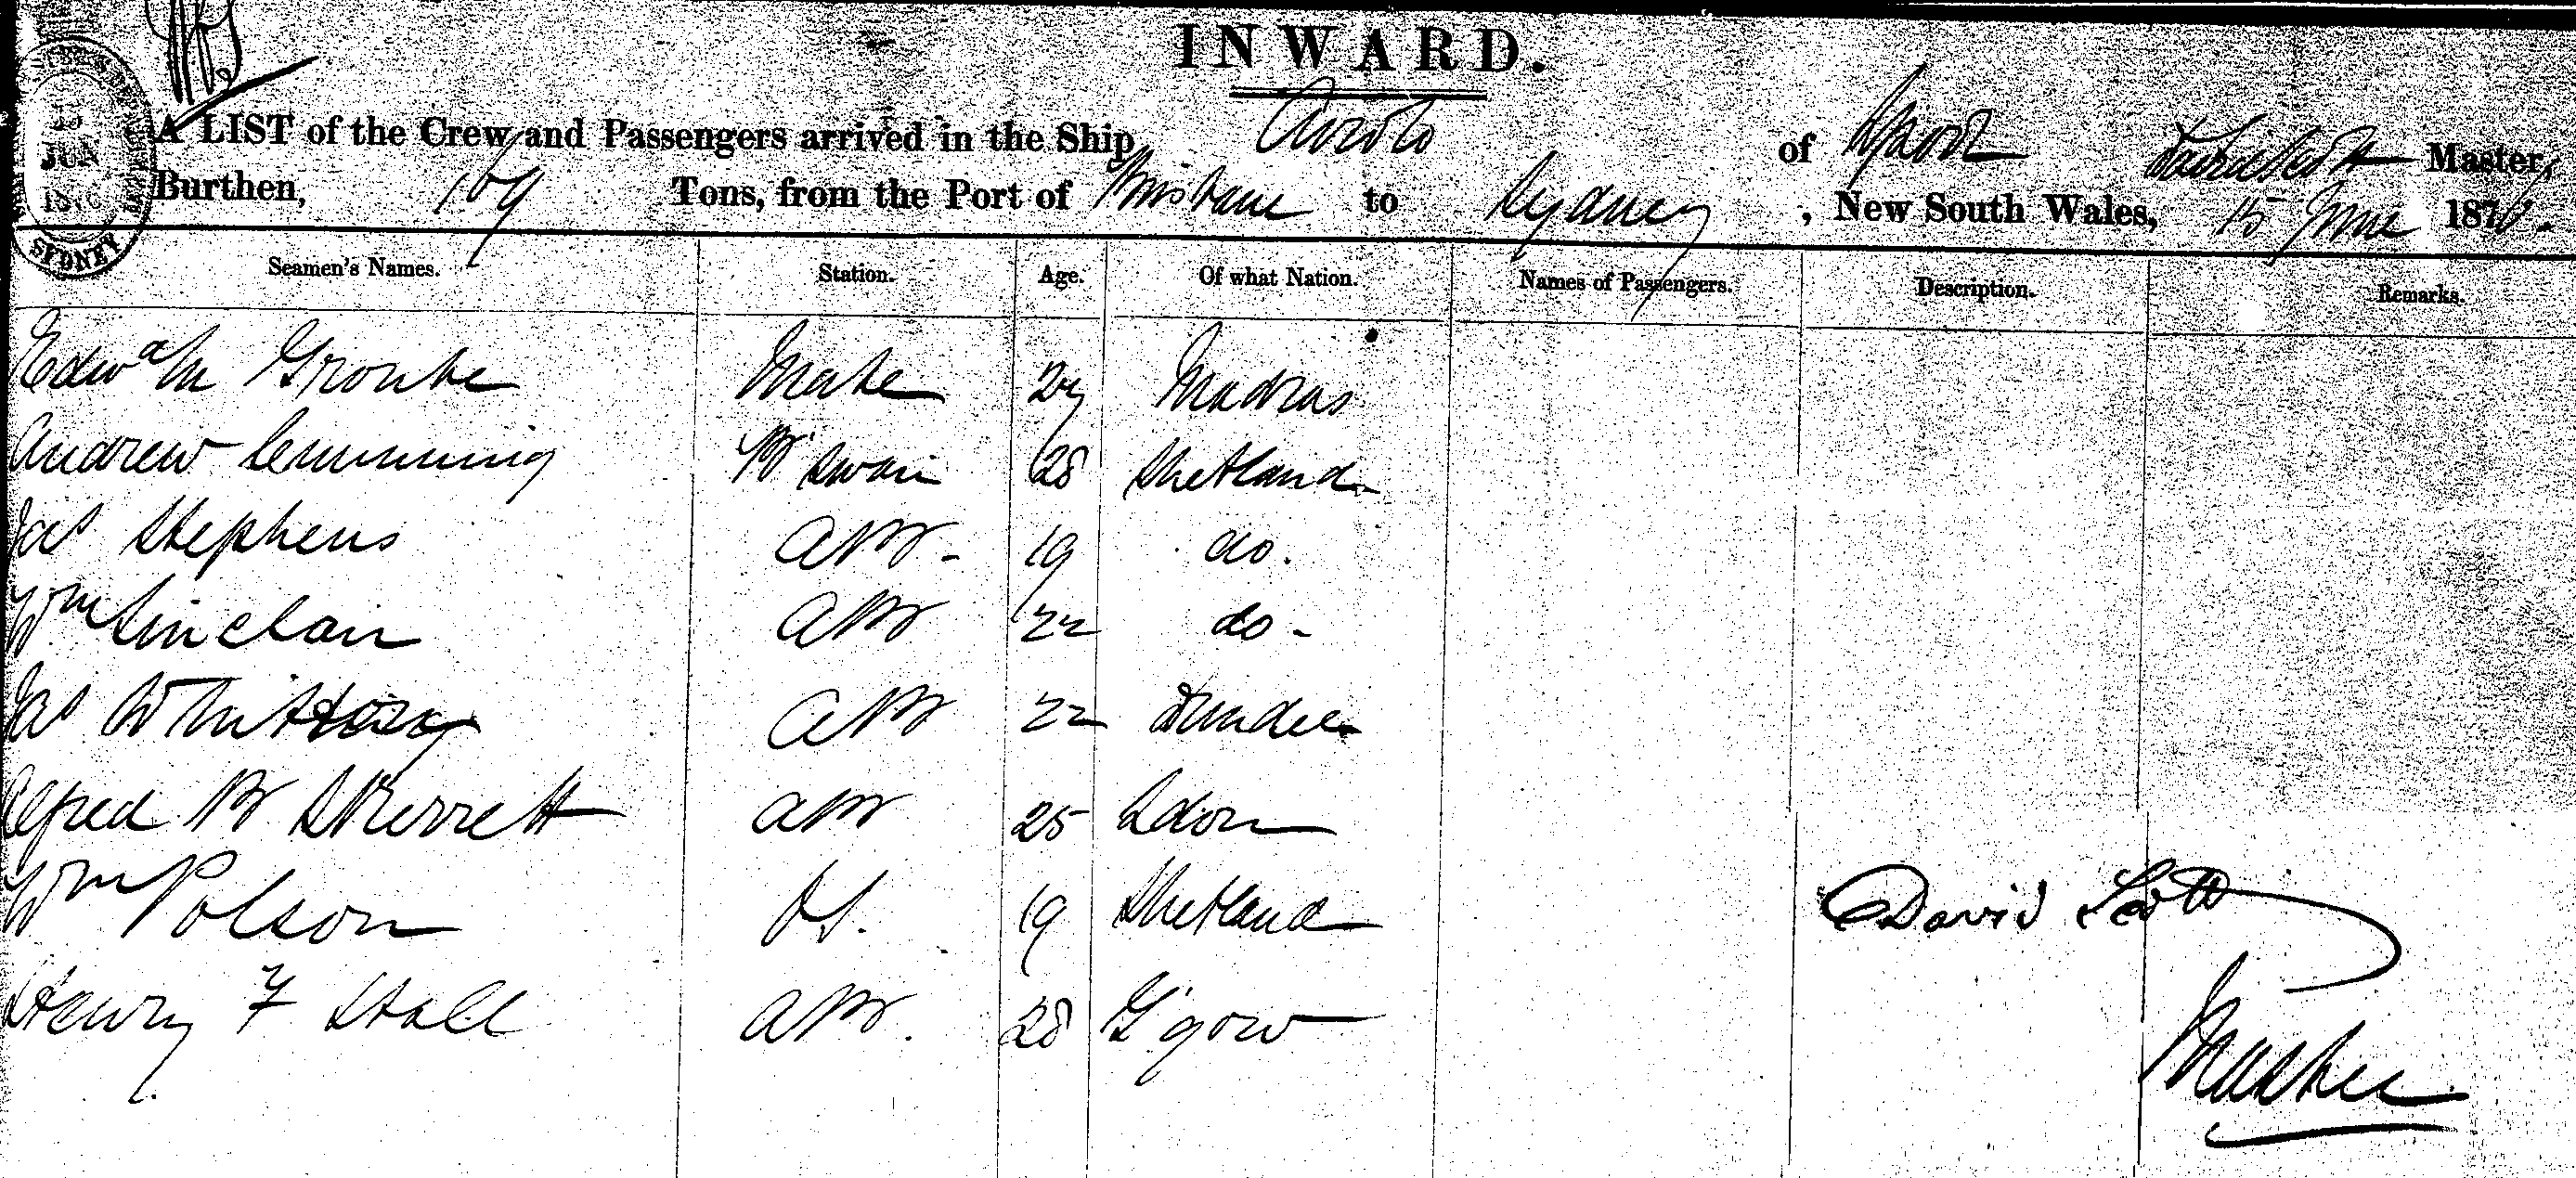 INWARD.
A LIST of the Crew and Passengers arrived in the Ship of David Scott Master,
Burthen, 169 Tons, from the Port of Brisbane to Sydney, New South Wales, 15 June 187
JUN
SYDNEY
Seamen's Names. Station. Age. Of what Nation. Names of Passengers. Description. Remarks.
Mate Madras
Andrew Cumming B'swain 28 Shetland
Jas Stephens AB - 19 do.
Wm Sinclair AB 22 do -
Jas AB 22 Dundee
Alfred B Skerrett AB 25 Ldon
Wm Polson OS. 19 Shetland
Henry F Hall AB. 28 G'gow
David Scott
Master